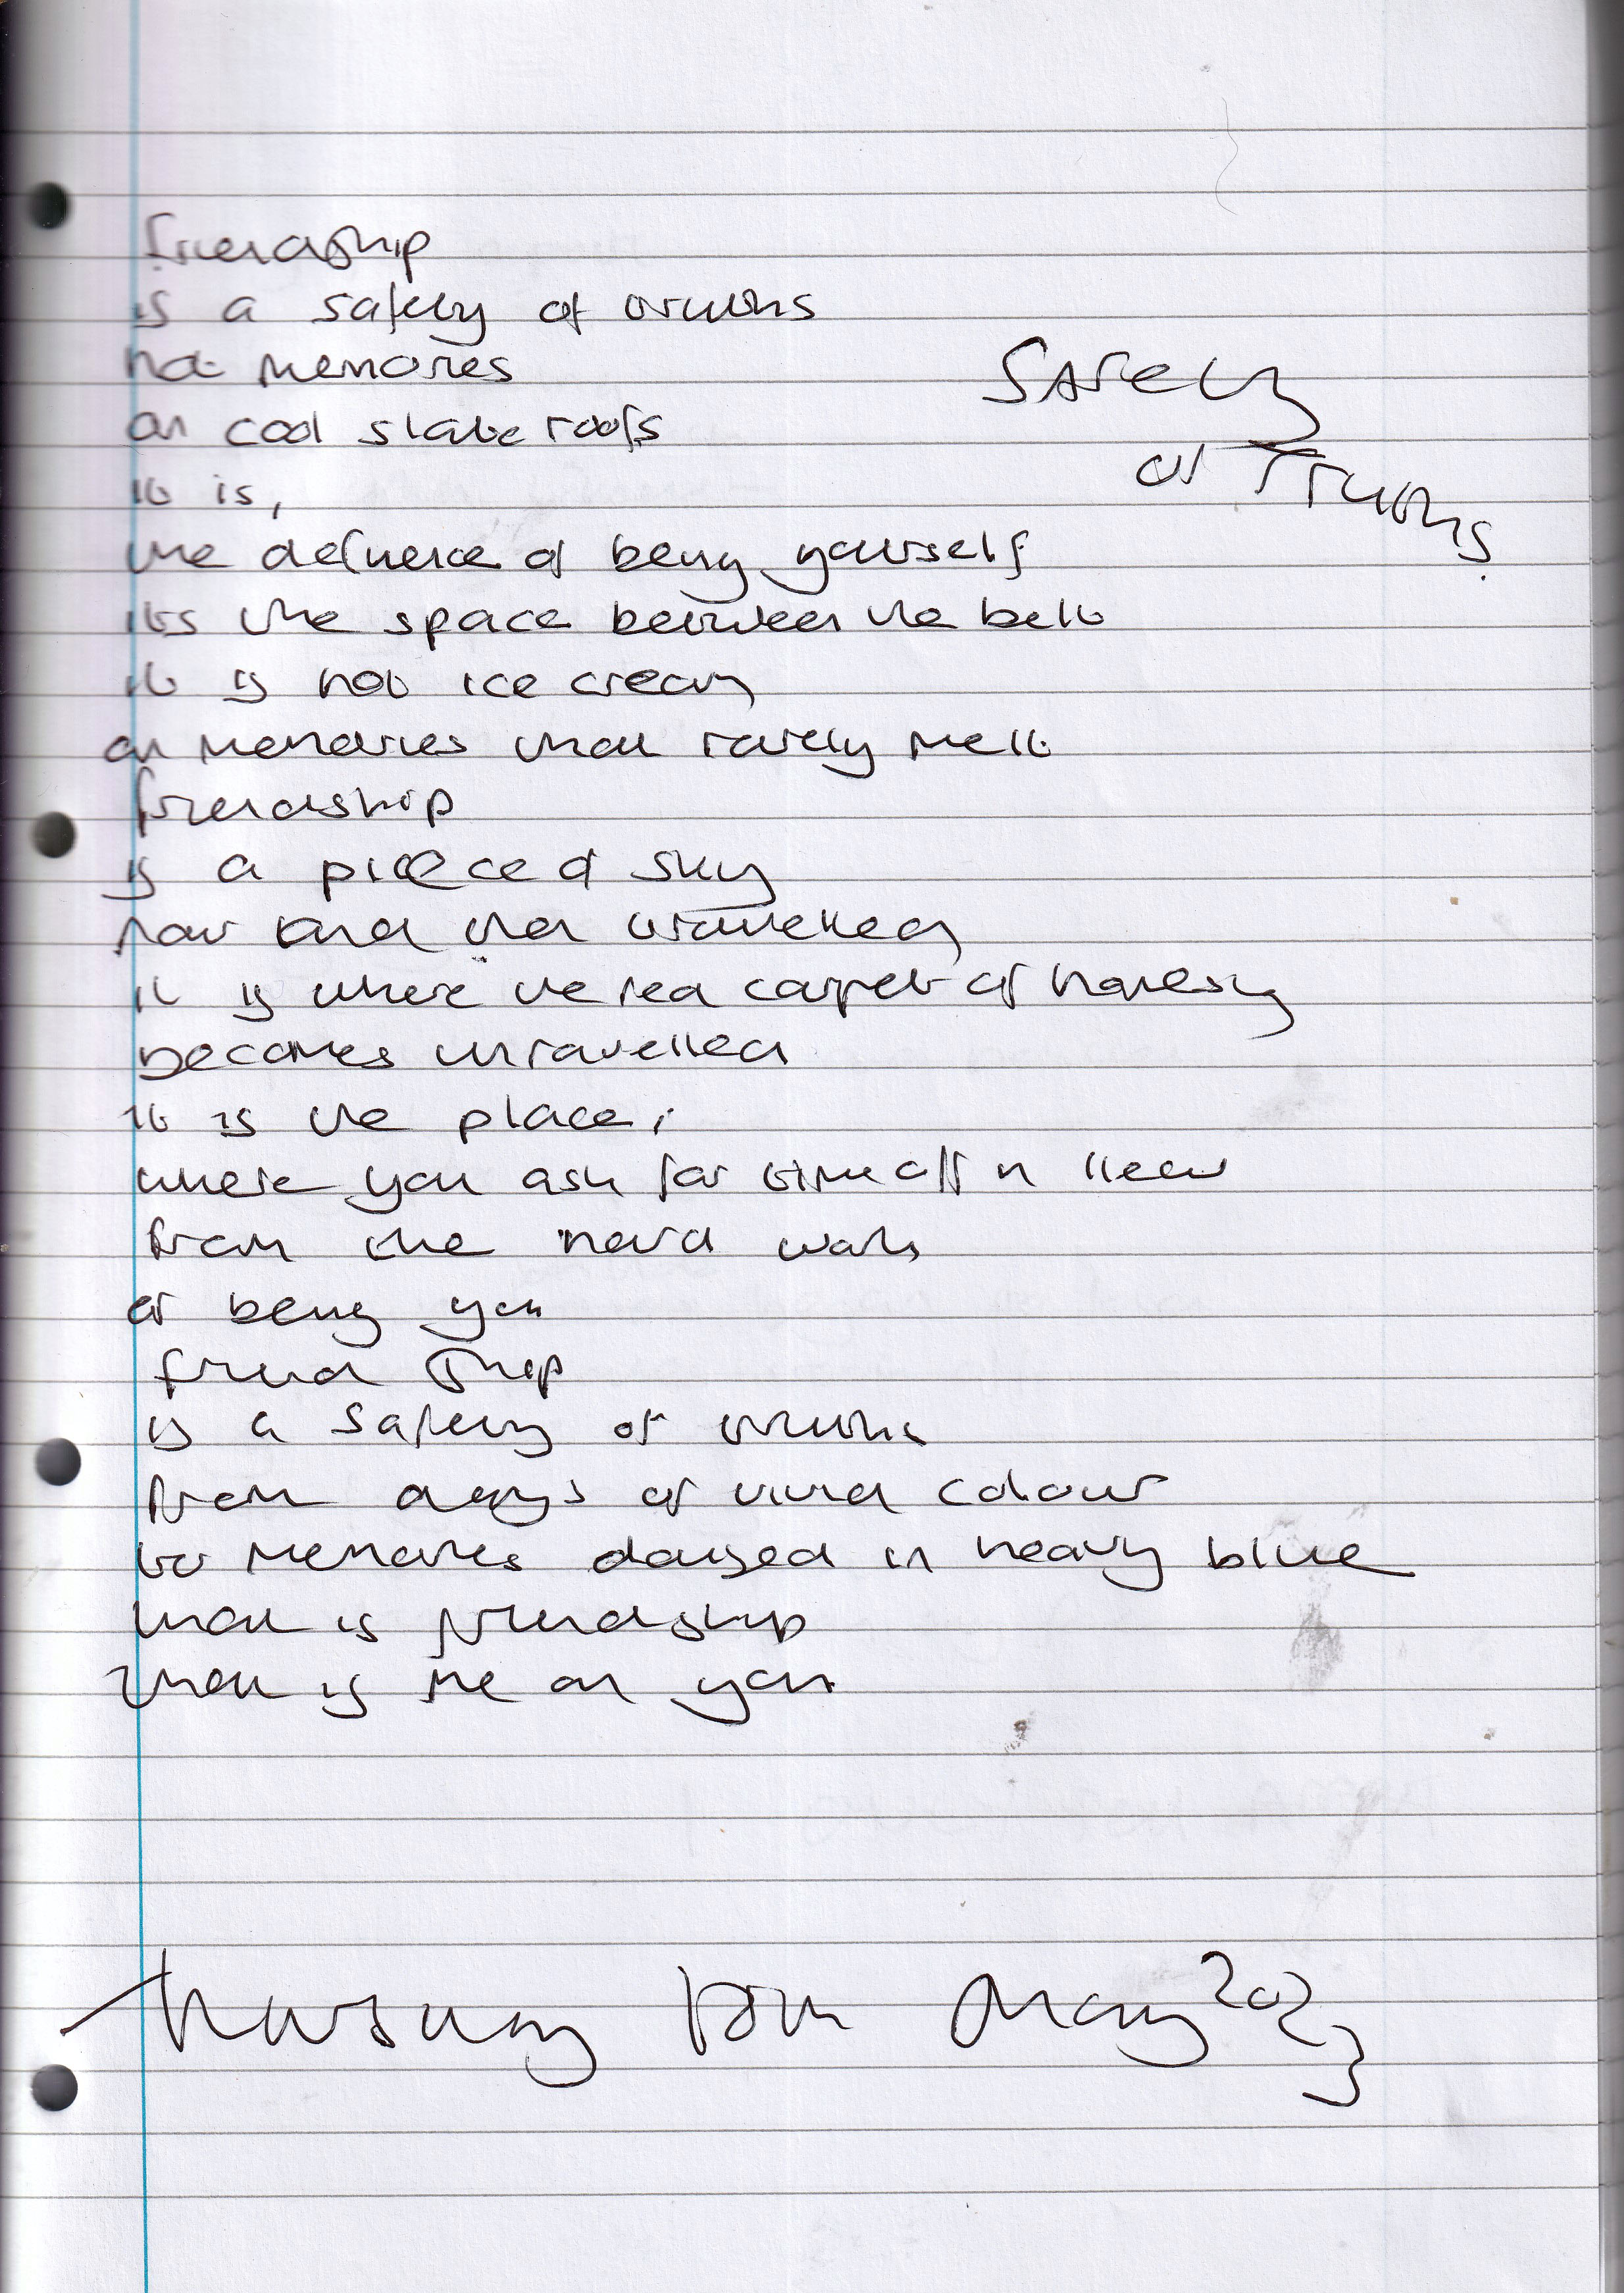 Safety
of Truths
friendship
is a safety of truths
not memories
on cool slate roofs
it is,
the defience of being yourself
its the space between the belt
it is not ice cream
or memories that rarely melt
friendship
is a pieece of sky
now and then travelled
it is where the red carpet of honesty
becomes unravelled
it is the place,
where you ask for time off n lieu
from the hard work
of being you
friend ship
is a safety of truths
from days of vivid colour
to memories daysed in heavy blue
that is friendship
that is me on you
Thursday May 2023